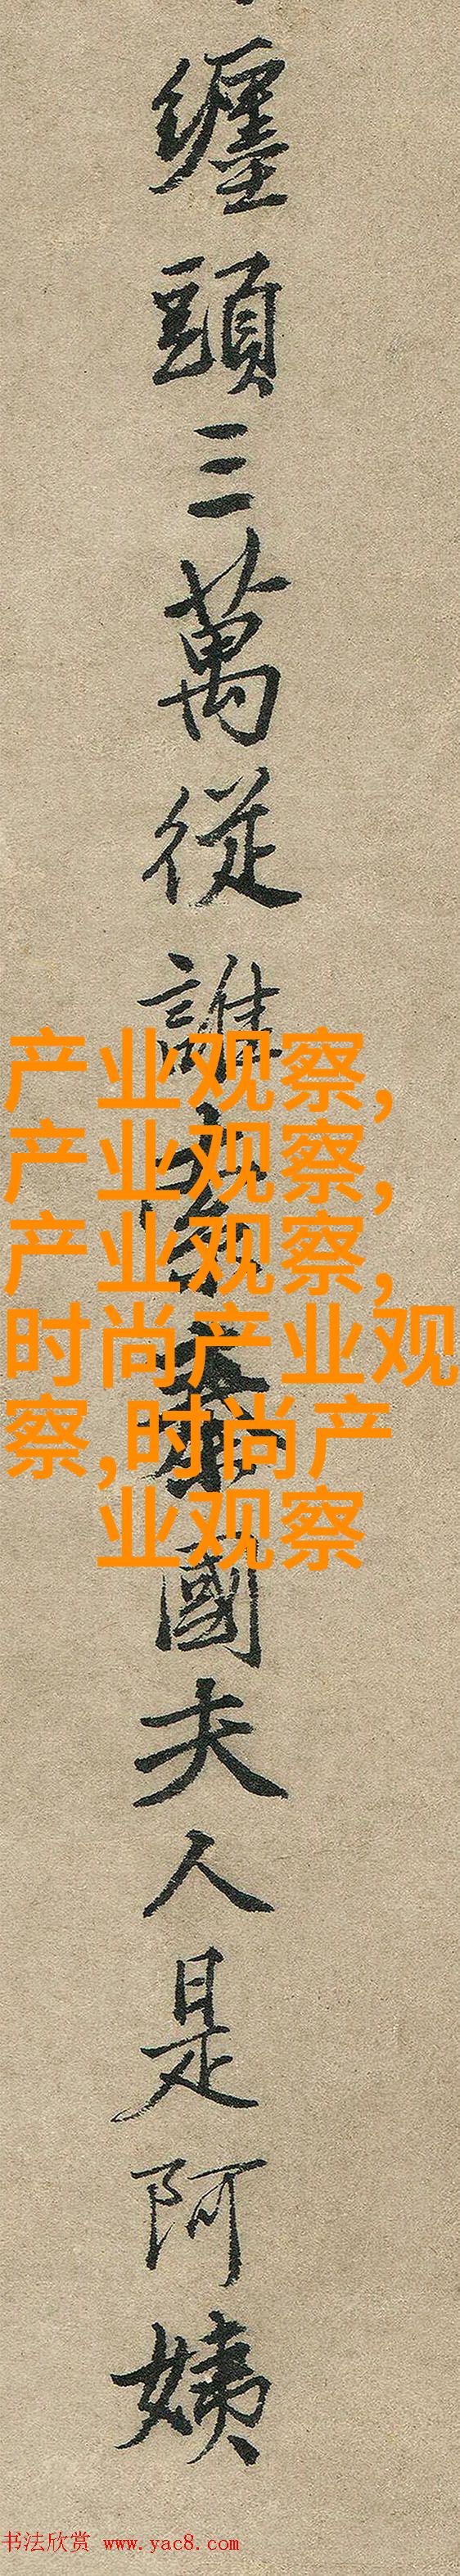 纏頭三萬從誰
國夫人是阿姨
产业观察,
产业观察,
产业观察,
时尚产业观
察,时尚产
业观察
书法欣赏 www.yac8.com